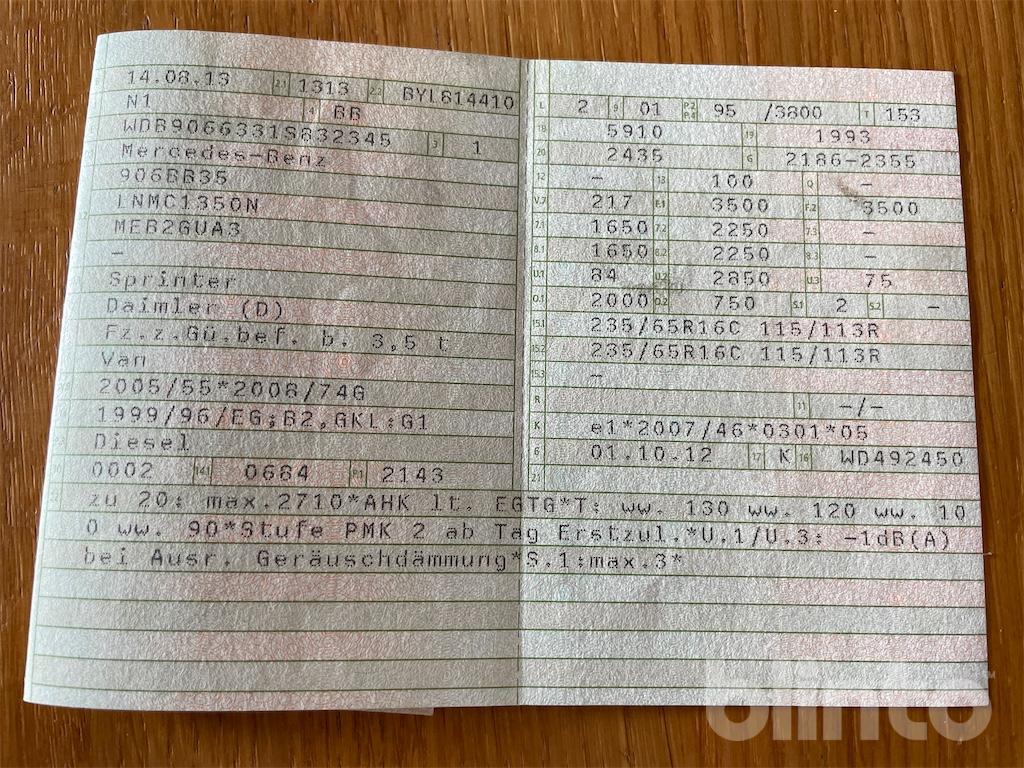 14.08.13 2.1 1313 2.2 BYL814410
N1 4 BB
WDB9066331S832345 3 1
Mercedes-Benz
906BB35
LNMC1350N
MEB2GUA3
–
Sprinter
Daimler (D)
Fz.z.Gü.bef. b. 3,5 t
Van
2005/55*2008/74G
1999/96/EG;B2,GKL:G1
Diesel
0002 14.1 0684 P.1 2143
L 2 9 01 P.2 P.4 95 /3800 T 153
18 5910 19 1993
20 2435 G 2186-2355
12 – 13 100 Q –
V.7 217 F.1 3500 F.2 3500
7.1 1650 7.2 2250 7.3 –
8.1 1650 8.2 2250 8.3 –
U.1 84 U.2 2850 U.3 75
O.1 2000 O.2 750 S.1 2 S.2 –
15.1 235/65R16C 115/113R
15.2 235/65R16C 115/113R
15.3 –
R 11 –/–
K e1*2007/46*0301*05
6 01.10.12 17 K 16 WD492450
21
zu 20: max.2710*AHK lt. EGTG*T: ww. 130 ww. 120 ww. 10
0 ww. 90*Stufe PMK 2 ab Tag Erstzul.*U.1/U.3: -1dB(A)
bei Ausr. Geräuschdämmung*S.1:max.3*